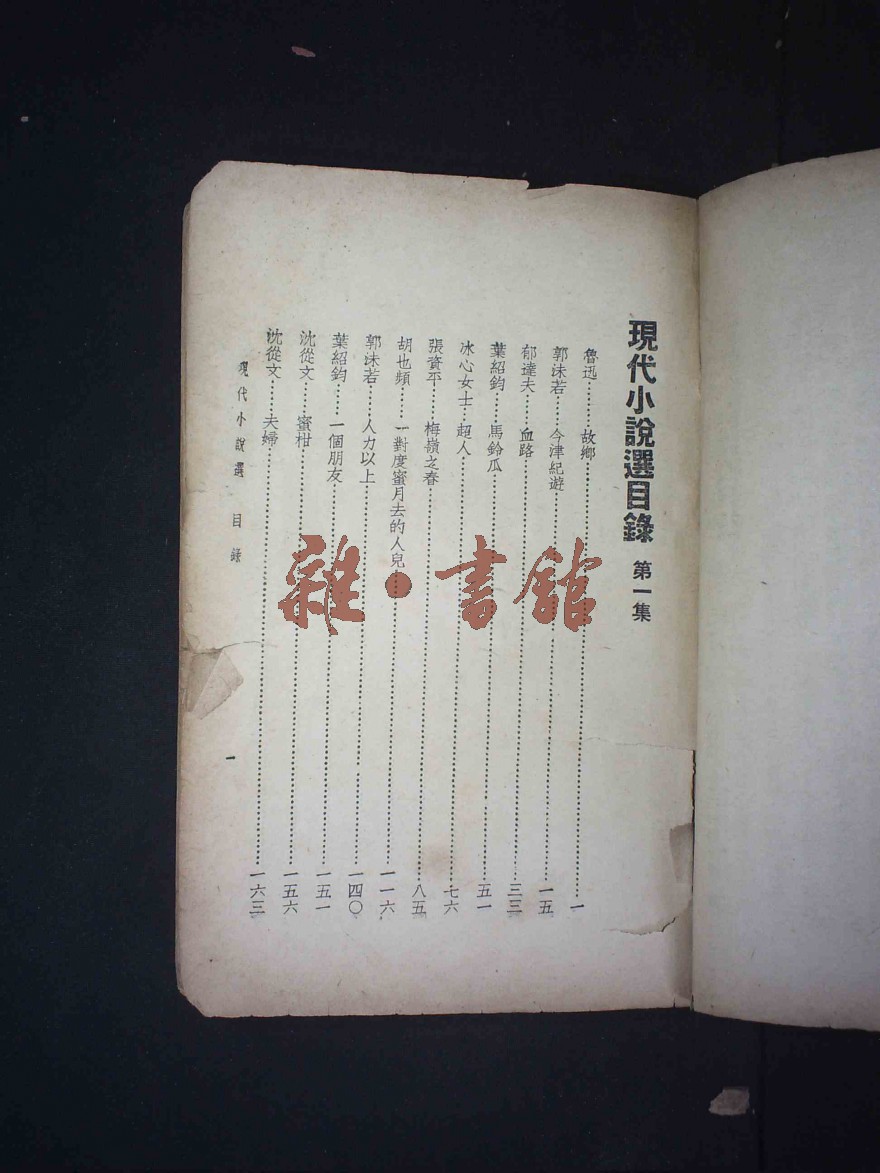 現代小說選目錄 第一集
魯迅………故鄉……………………一
郭沫若……今津紀遊……………………一五
郁達夫……血路……………………三三
葉紹鈞……馬鈴瓜……………………五一
冰心女士…超人……………………七六
張資平……梅嶺之春……………………八五
胡也頻……一對度蜜月去的人兒……………………一一六
郭沫若……人力以上……………………一四〇
葉紹鈞……一個朋友……………………一五一
沈從文……蜜柑……………………一五六
沈從文……夫婦……………………一六三
現代小說選 目錄 一
雜·書館